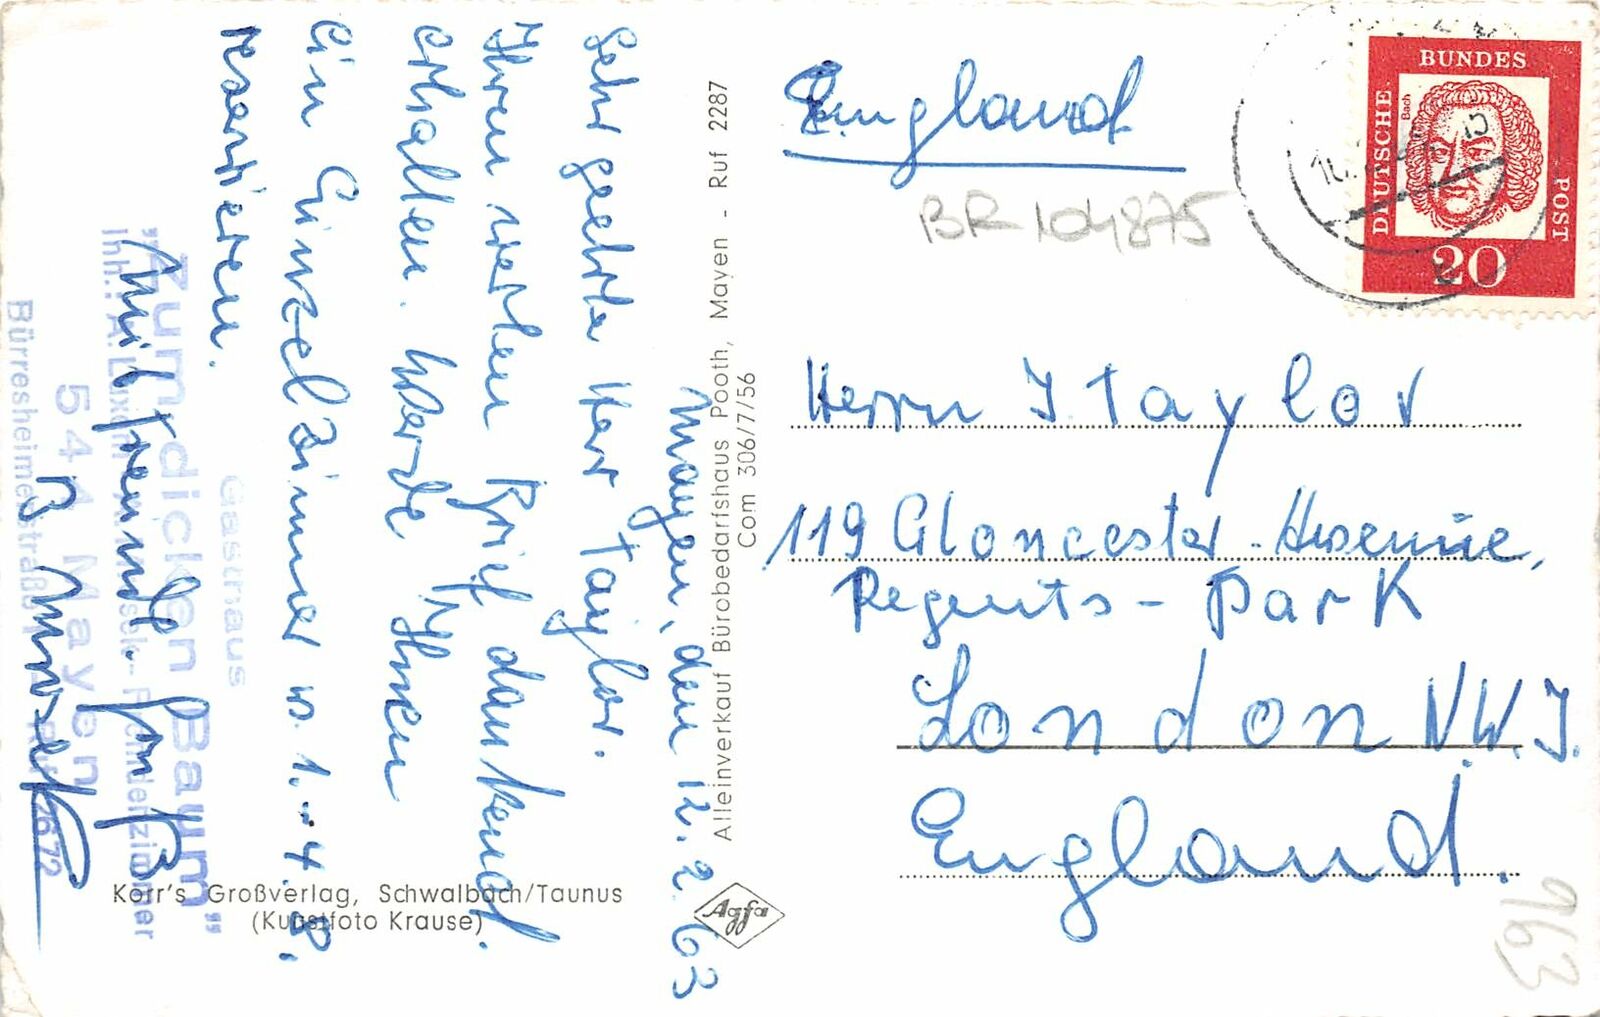 Mayen, den 12.2.63
Sehr geehrter Herr Taylor.
Ihren werten Brief dankend
erhalten. Werde Ihnen
ein Einzelzimmer v. 1.-4.8.
reservieren.
Mit freundl. Gruß
Gasthaus
"Zum dicken Baum"
Fremdenzimmer
544 Mayen
Bürresheimerstraße
2672
Korr's Großverlag, Schwalbach/Taunus
(Kunstfoto Krause)
Alleinverkauf Bürobedarfshaus Pooth, Mayen - Ruf 2287
Com 306/7/56
Agfa
England
BR 104875
DEUTSCHE
BUNDES
POST
Bach
20
Herrn J. Taylor
119 Gloncester-Avenüe,
Regents-Park
London N.W.1.
England.
963